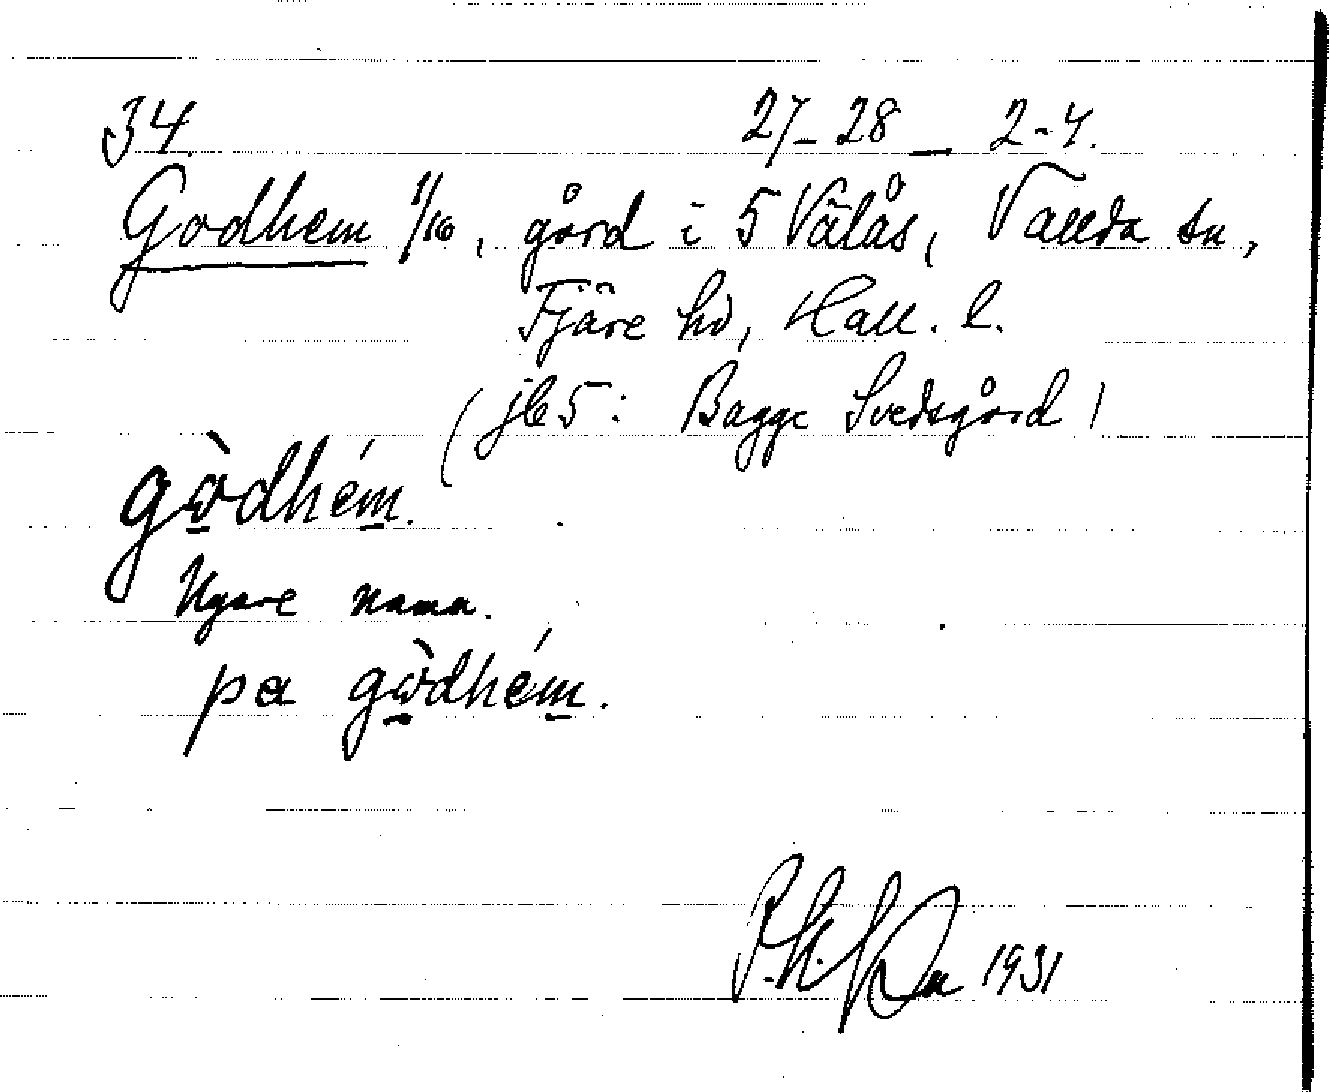 34. 27-28 — 2-4.
Godhem 1/16, gård i 5 Välås, Vallda sn,
Fjäre hd, Hall. l.
(jb 5: Bagge Svedsgård)
gὼdhém.
Nyare namn.
pa gὼdhém.
1931